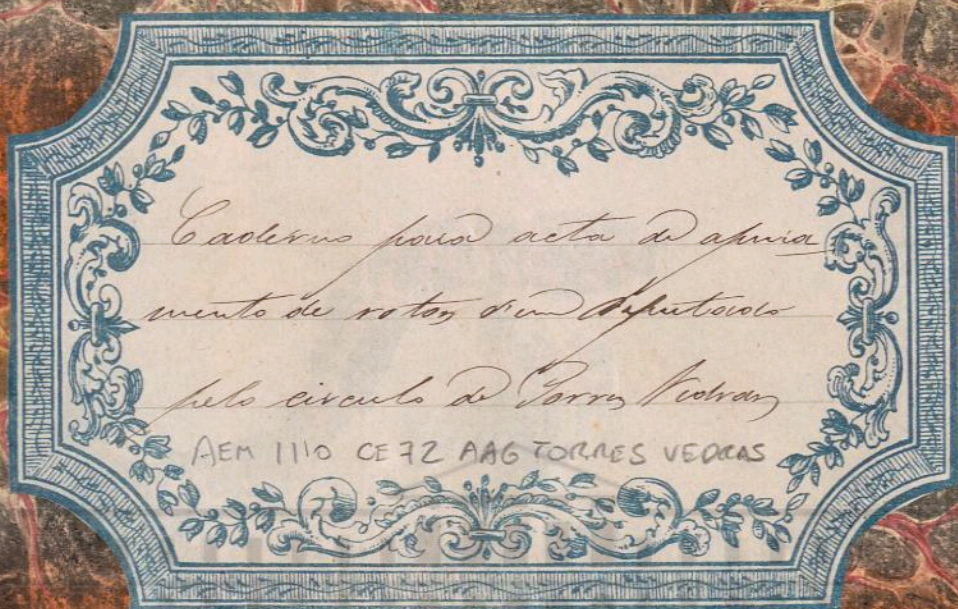 Caderno para acta de apura
mento de votos d'um Deputado
pelo circulo de Torres Vedras
AEM 1110 CE 72 AAG TORRES VEDRAS